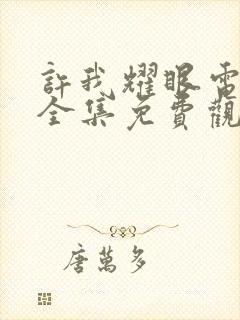 許我耀眼電
全集免費觀
唐萬多